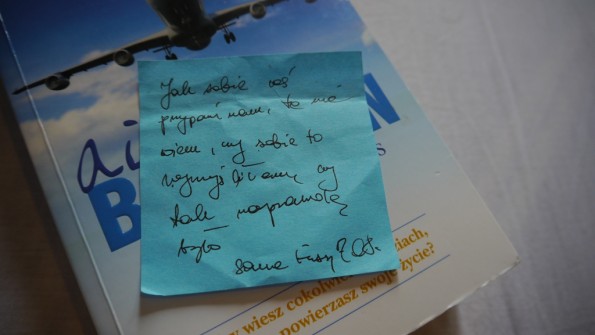 Jak sobie coś
przypominam, to nie
wiem, czy sobie to
wymyśliłam, czy
tak naprawdę
było
sama
ai
B N
s
wiesz cokolwiek iach,
powierzasz swoje życie?